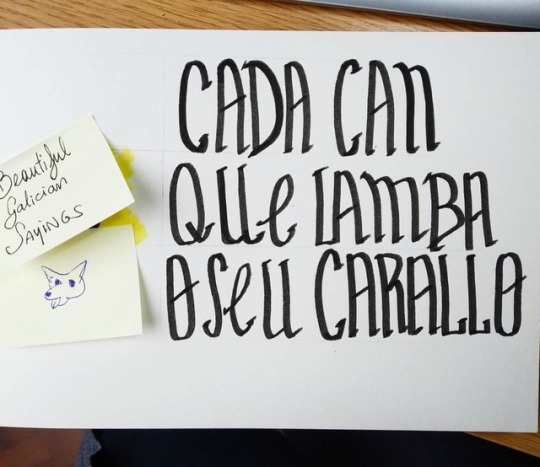 Beautiful
Galician
SAYINGS
CADA CAN
QUe LAMBA
O SeU CARALLO